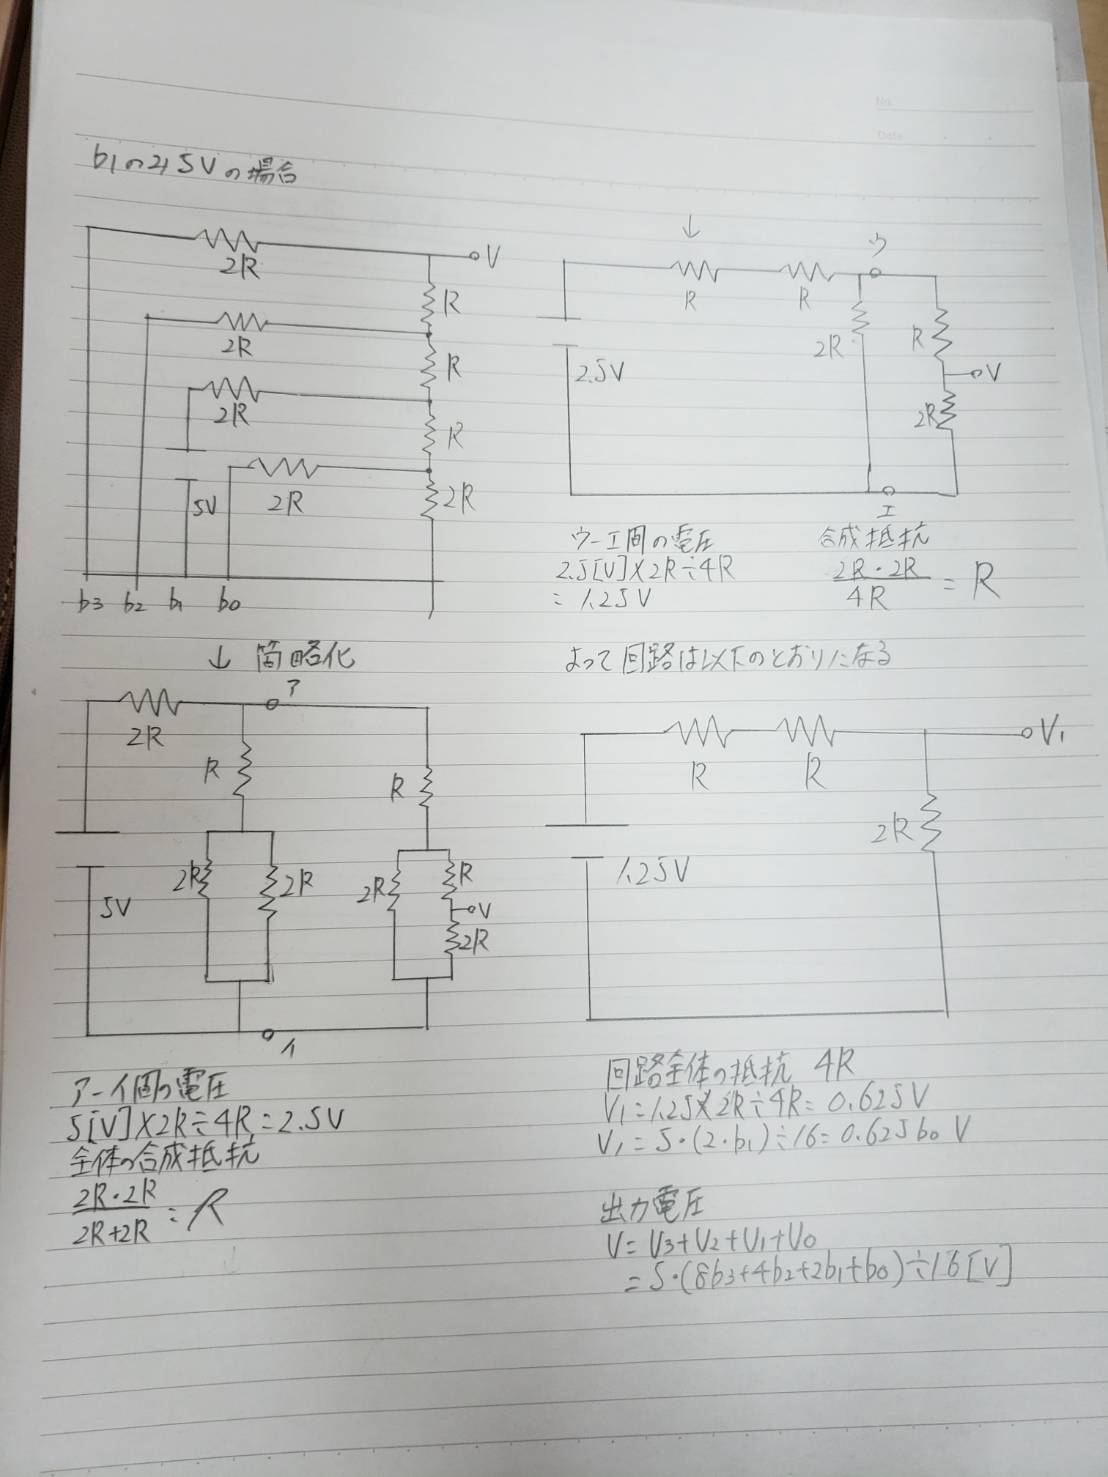 No.
Date
b1のみ5Vの場合
2R
V
R
2R
R
2R
R
2R
2R
5V
b3 b2 b1 b0
↓ 簡略化
ア
2R
R
R
2R
2R
2R
R
V
2R
5V
イ
ア-イ間の電圧
5[V]×2R÷4R=2.5V
全体の合成抵抗
2R・2R
2R+2R
= R
↓
↓
R
R
ウ
2R
R
V
2R
2.5V
エ
ウ-エ間の電圧
2.5[V]×2R÷4R
=1.25V
合成抵抗
2R・2R
4R
= R
よって回路は以下のとおりになる
R
R
V1
2R
1.25V
回路全体の抵抗 4R
V1=1.25×2R÷4R=0.625V
V1=5・(2・b1)÷16=0.625b0 V
出力電圧
V=V3+V2+V1+V0
=5・(8b3+4b2+2b1+b0)÷16[V]